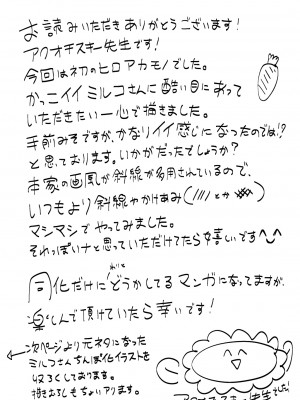 お読みいただきありがとうございます!
アクオチスキー先生です!
今回は初のヒロアカモノでした。
かっこイイミルコさんに酷い目にあって
いただきたい一心で描きました。
手前みそですが、かなりイイ感じになったのでは!?
と思っております。いかがだったでしょうか?
本家の画風が斜線が多用されているので、
いつもより斜線やかけあみ(//// とか )
マシマシでやってみました。
それっぽいナと思っていただけてたら嬉しいです〜
同化だけにどうかしてるマンガになってますが、
楽しんで頂けていたら幸いです!
次ページより元ネタになった
ミルコさんちんぽ化イラストを
収ろくしております。
描きおろしもちょいアリます。
アクオチスキー先生でした!